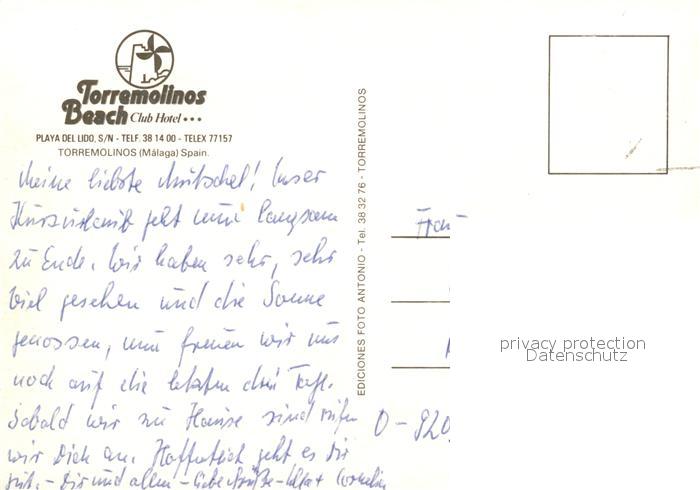 Torremolinos
Beach Club Hotel •••
PLAYA DEL LIDO, S/N - TELF. 38 14 00 - TELEX 77157
TORREMOLINOS (Málaga) Spain.
Meine liebste Mutschel! Unser
Kurzurlaub geht nun langsam
zu Ende. Wir haben sehr, sehr
viel gesehen und die Sonne
genossen, nun freuen wir uns
noch auf die letzten drei Tage.
Sobald wir zu Hause sind rufen
wir Dich an. Hoffentlich geht es Dir
gut. - Dir und allen - liebe Grüße - Cornelia
EDICIONES FOTO ANTONIO - Tel. 38 32 76 - TORREMOLINOS
Frau
D-820
privacy protection
Datenschutz